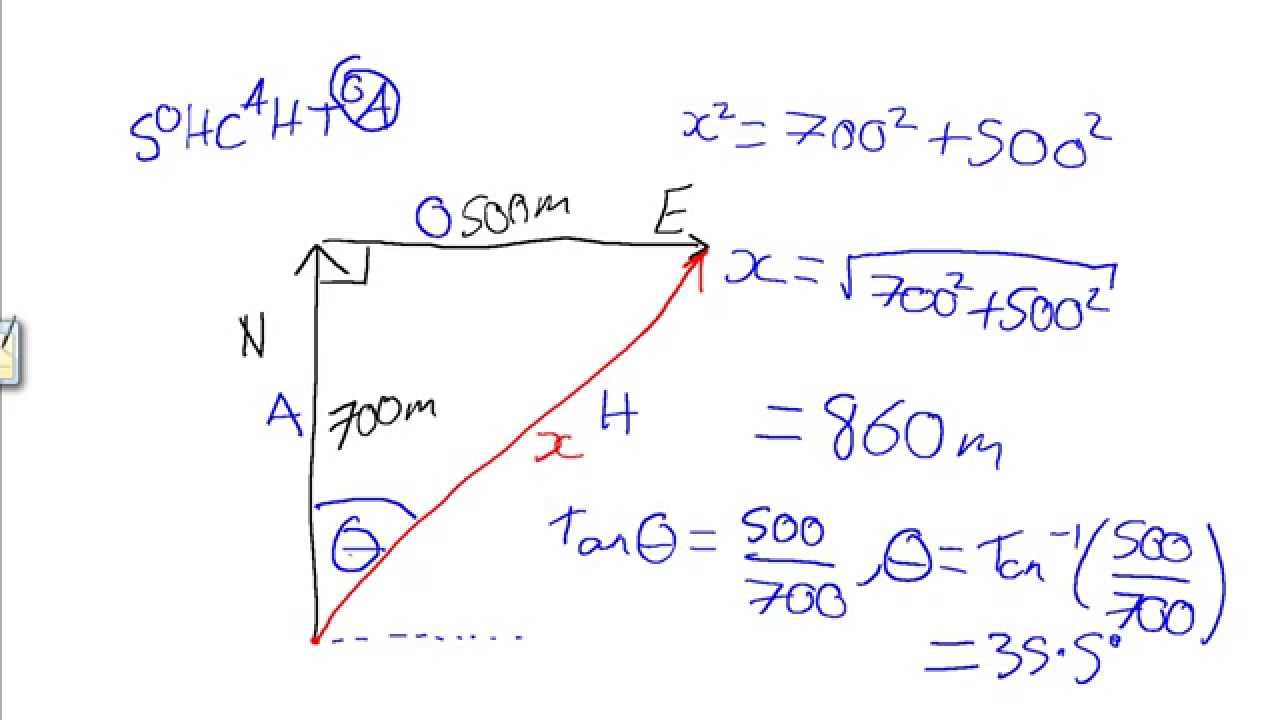 SOHCAHTOA
x² = 700² + 500²
O 500m E
x = √700² + 500²
N
A 700m
H
x
= 860m
θ
Tanθ = 500/700, θ = Tan⁻¹(500/700)
= 35.5°